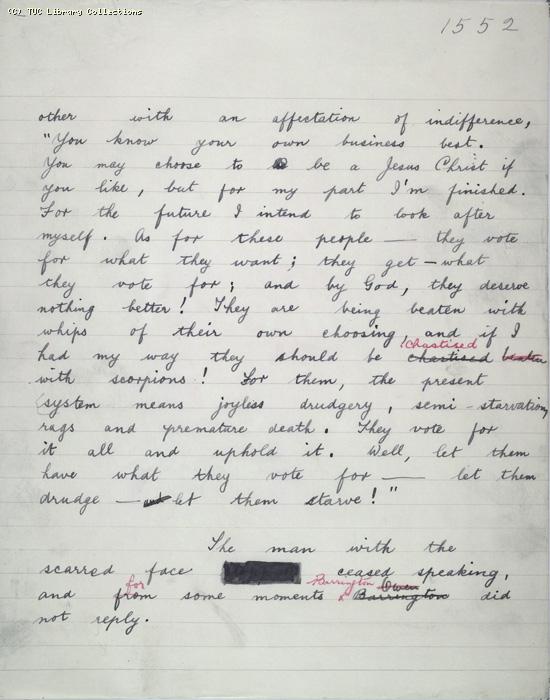 (C) TUC Library Collections
1552
other with an affectation of indifference,
"You know your own business best.
You may choose to be a Jesus Christ if
you like, but for my part I'm finished.
For the future I intend to look after
myself. As for these people — they vote
for what they want; they get – what
they vote for; and by God, they deserve
nothing better! They are being beaten with
whips of their own choosing, and if I
chastised
had my way they should be chastised beaten
with scorpions! For them, the present
system means joyless drudgery, semi-starvation,
rags and premature death. They vote for
it all and uphold it. Well, let them
have what they vote for — let them
drudge — and let them starve!"
The man with the
scarred face ceased speaking,
for Barrington Owen
and from some moments Barrington did
not reply.